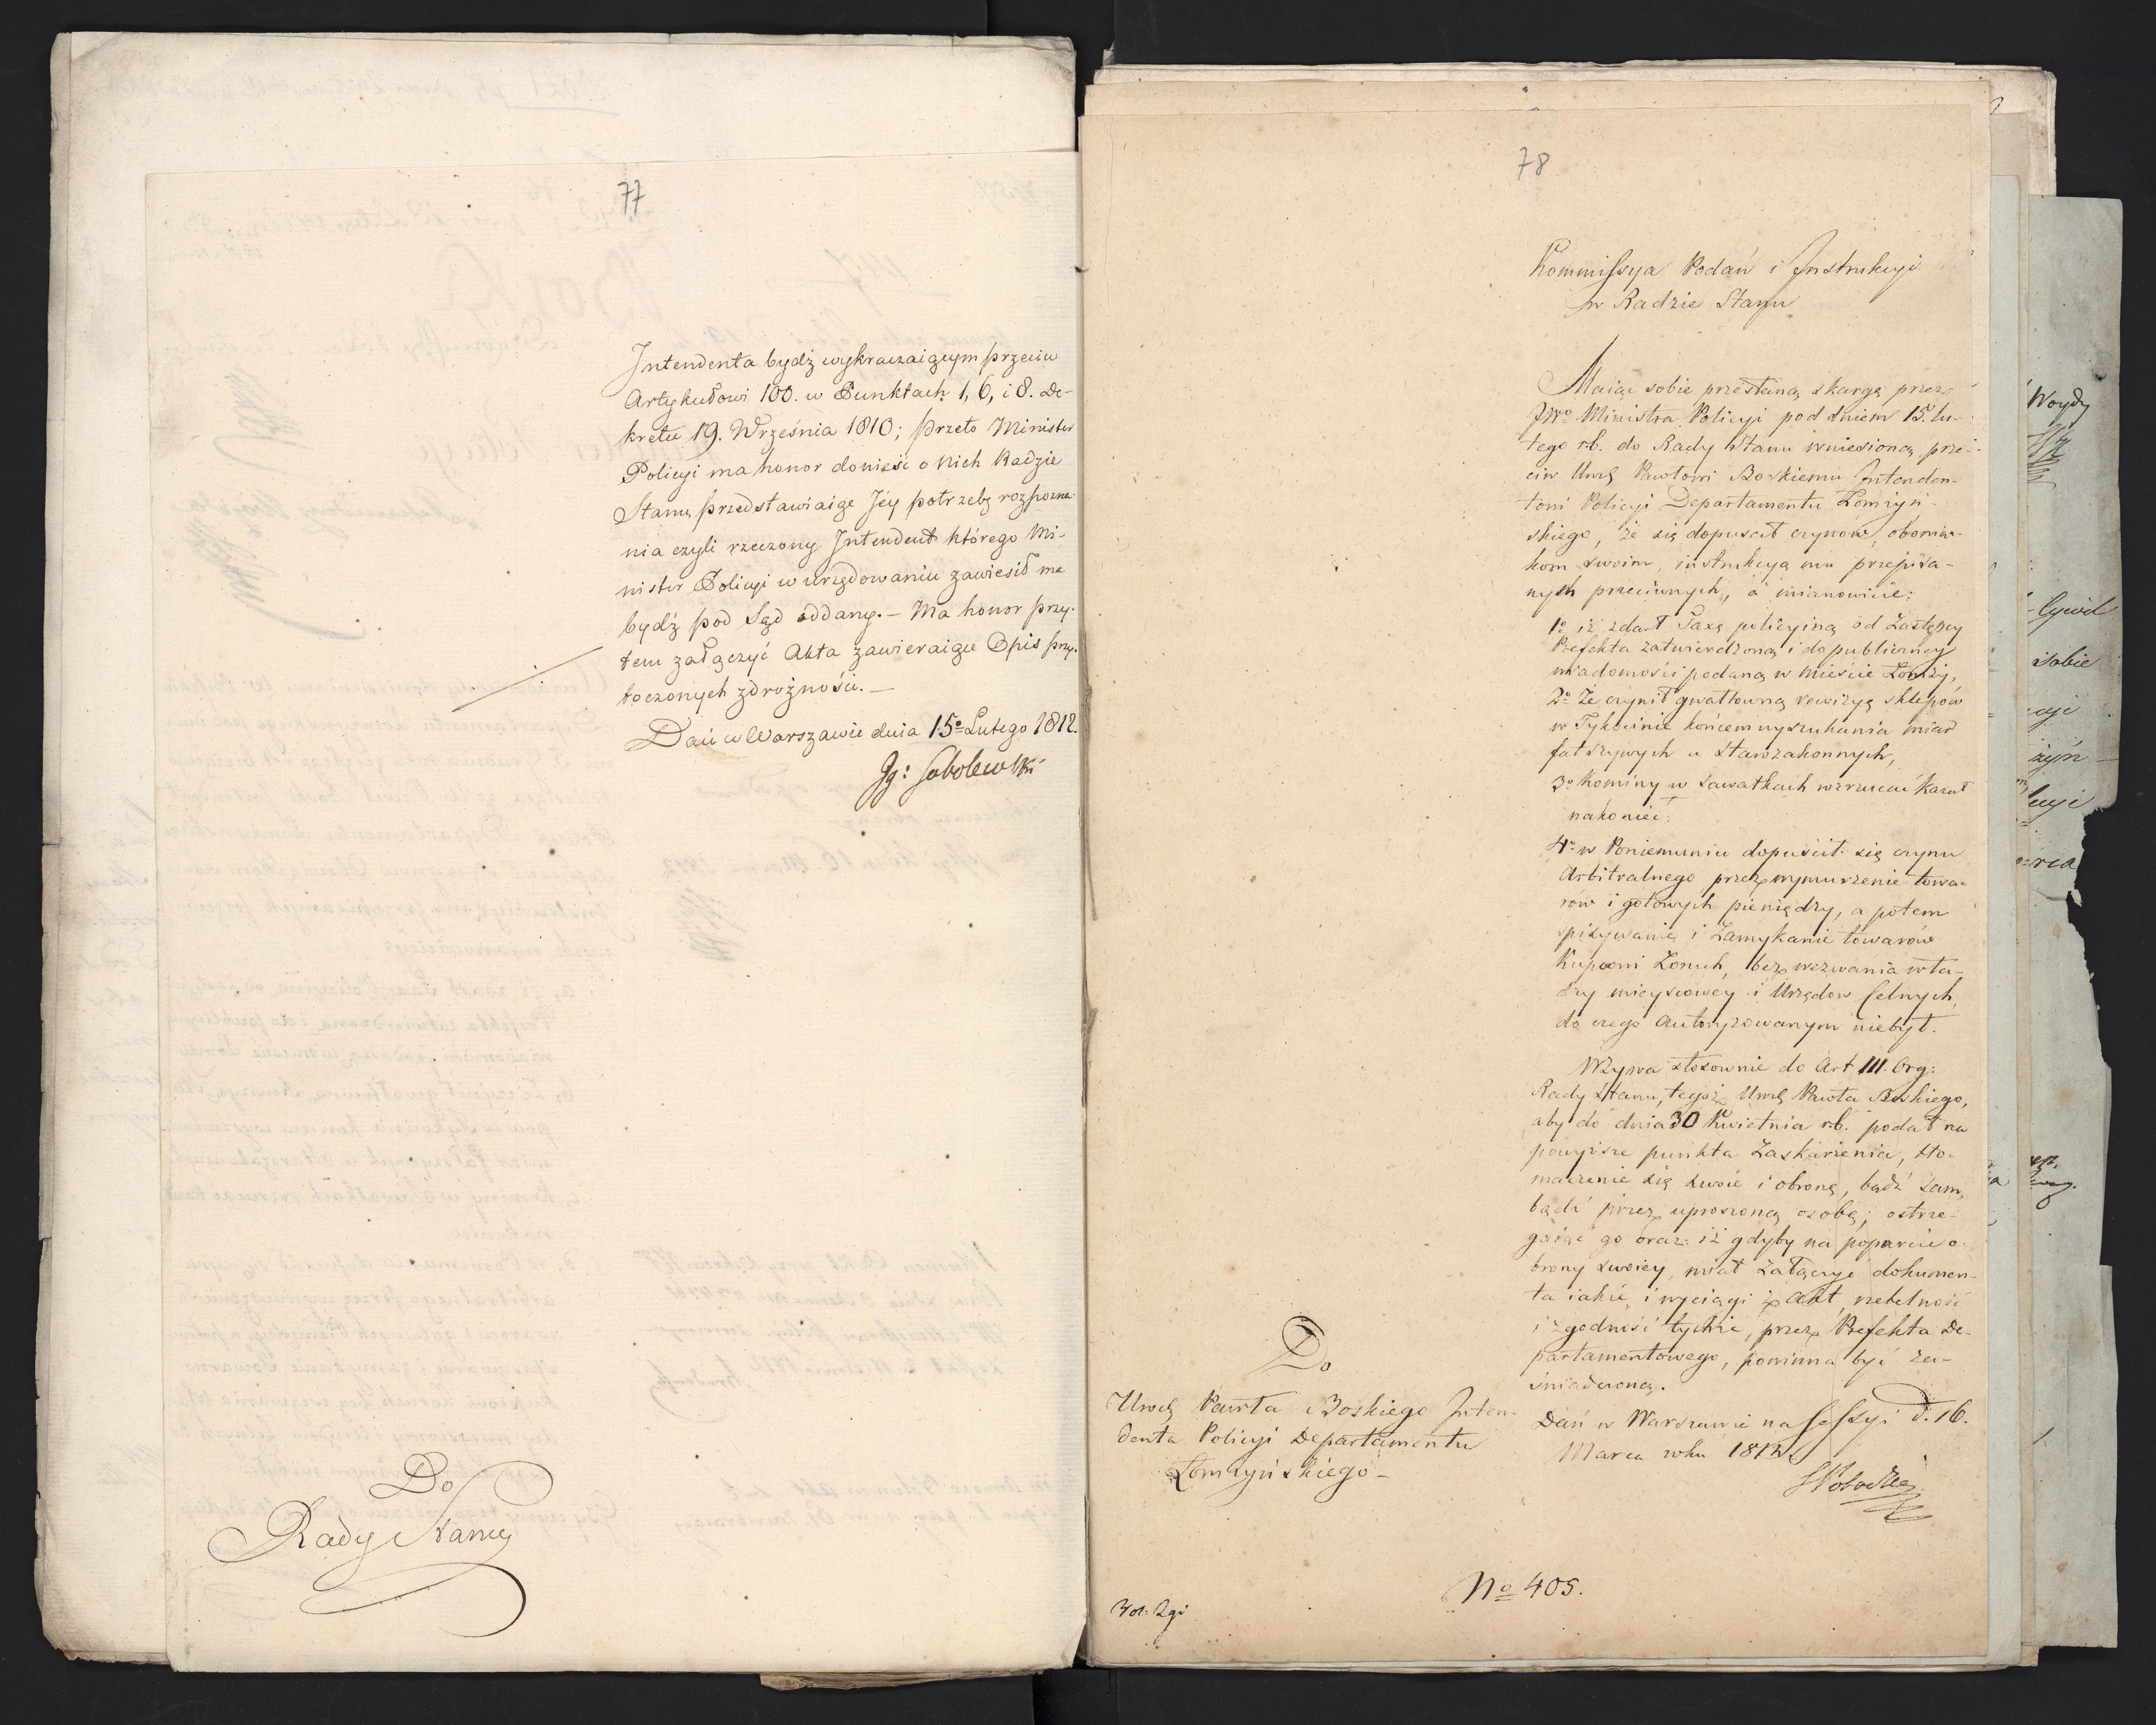 77
Intendenta bydź wykraczaiącym przeciw
Artykułowi 100. w Punktach 1, 6, i 8. De-
kretu 19. Września 1810; przeto Minister
Policyi ma honor donieść o nich Radzie
Stanu przedstawiaiąc Jey potrzebę rozpozna-
nia czyli rzeczony Intendent którego Mi-
nister Policyi w urzędowaniu zawiesił ma
bydź pod Sąd oddany. – Ma honor przy-
tem załączyć Akta zawieraiące Opis przy-
toczonych zdrożności. –
Dań w Warszawie dnia 15º Lutego 1812.
Jg: Sobolewski
Do
Rady Stanu
78
Kommissya Podań i Instrukcyi
w Radzie Stanu
Maiąc sobie przesłaną skargę przez
JWº Ministra Policyi pod dniem 15. lu-
tego rb. do Rady Stanu wniesioną prze-
ciw Urod. Pawłowi Boskiemu Intenden-
towi Policyi Departamentu Łomżyń-
skiego, że się dopuścił czynow, obowiąz-
kom swoim, instrukcyą mu przepisa-
nych przeciwnych, a mianowicie:
1º iż zdarł Taxę policyiną od Zastępcy
Prefekta zatwierdzoną i do publiczney
wiadomości podaną w mieście Łomży,
2º Że czynił gwałtowną rewizyą sklepów
w Tykocinie końcem wyszukania miar
fałszywych u starozakonnych,
3º Kominy w Suwałkach wzruszać kazał
nakoniec:
4º w Poniemuniu dopuścił się czynu
Arbitralnego przez wymurzenie towa-
rów i gotowych pieniędzy, a potem
spisywanie i Zamykanie towarów
Kupcowi Zonuh, bez wezwania wła-
dzy mieyscowey i Urzędow Celnych,
do czego Autoryzowanym niebył.
Wzywa stosownie do Art III. Org:
Rady Stanu, tegoż Urod. Pawła Boskiego,
aby do dnia 30 Kwietnia rb. podał na
powyższe punkta Zaskarżenia, tło-
maczenie się swoie i obronę, bądź sam,
bądź przez uproszoną osobę; ostrze-
gaiąc go oraz: iż gdyby na poparcie o-
brony swoiey miał załączyć dokumen-
ta iakie, i wyciągi z Akt, rzetelność
i zgodność tychże, przez Prefekta De-
partamentowego, powinna być za-
świadczoną.
Dań w Warszawie na Sessyi d. 16.
Marca roku 1812
Do
Urod. Pawła Boskiego Inten-
denta Policyi Departamentu
Łomżyńskiego –
Nº 405.
Woydy
sobie